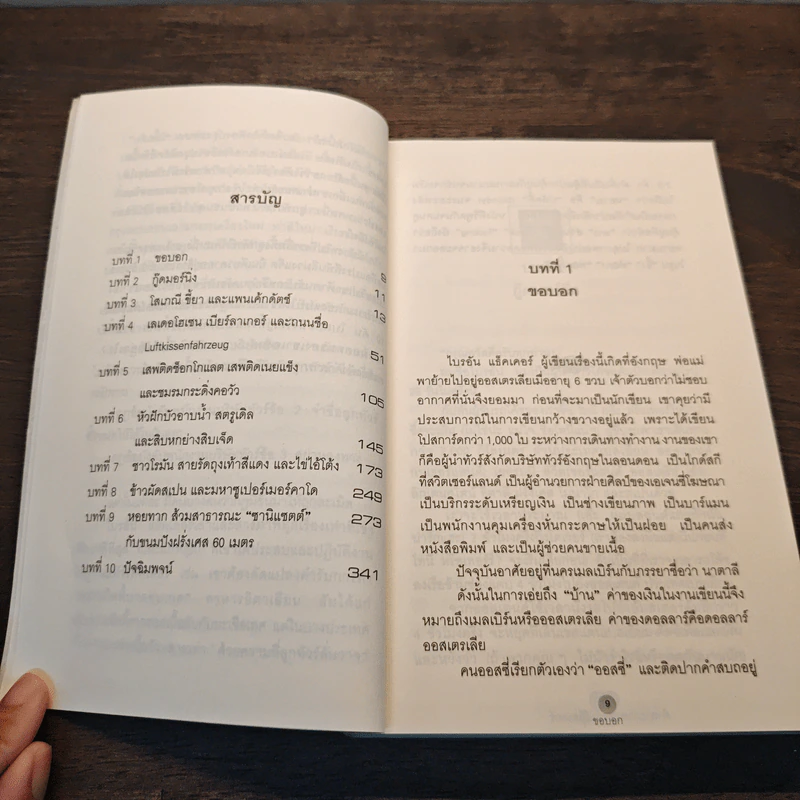 สารบัญ
บทที่ 1 ขอบอก 9
บทที่ 2 กู๊ดมอร์นิ่ง 11
บทที่ 3 โสเภณี ขี้ยา และแพนเค้กดัตช์ 13
บทที่ 4 เลเดอโฮเซน เบียร์ลาเกอร์ และถนนชื่อ
Luftkissenfahrzeug 51
บทที่ 5 เสพติดช็อกโกแลต เสพติดเนยแข็ง
และชมรมกระดิ่งคอวัว 105
บทที่ 6 หัวฝักบัวอาบน้ำ สตรูเดิล
และสิบหกย่างสิบเจ็ด 145
บทที่ 7 ชาวโรมัน สายรัดถุงเท้าสีแดง และไข่ไอ้โต้ง 173
บทที่ 8 ข้าวผัดสเปน และมหาซูเปอร์เมอร์คาโด 249
บทที่ 9 หอยทาก ส้วมสาธารณะ “ซานิแซตต์” 273
กับขนมปังฝรั่งเศส 60 เมตร
บทที่ 10 ปัจฉิมพจน์ 341
บทที่ 1
ขอบอก
ไบรอัน แธ็คเคอร์ ผู้เขียนเรื่องนี้เกิดที่อังกฤษ พ่อแม่
พาย้ายไปอยู่ออสเตรเลียเมื่ออายุ 6 ขวบ เจ้าตัวบอกว่าไม่ชอบ
อากาศที่นั่นจึงยอมมา ก่อนที่จะมาเป็นนักเขียน เขาคุยว่ามี
ประสบการณ์ในการเขียนกว้างขวางอยู่แล้ว เพราะได้เขียน
โปสการ์ดกว่า 1,000 ใบ ระหว่างการเดินทางทำงาน งานของเขา
ก็คือผู้นำทัวร์สังกัดบริษัททัวร์อังกฤษในลอนดอน เป็นไกด์สกี
ที่สวิตเซอร์แลนด์ เป็นผู้อำนวยการฝ่ายศิลป์ของเอเจนซี่โฆษณา
เป็นบริกรระดับเหรียญเงิน เป็นช่างเขียนภาพ เป็นบาร์แมน
เป็นพนักงานคุมเครื่องหั่นกระดาษให้เป็นฝอย เป็นคนส่ง
หนังสือพิมพ์ และเป็นผู้ช่วยคนขายเนื้อ
ปัจจุบันอาศัยอยู่ที่นครเมลเบิร์นกับภรรยาชื่อว่า นาตาลี
ดังนั้นในการเอ่ยถึง “บ้าน” ค่าของเงินในงานเขียนนี้จึง
หมายถึงเมลเบิร์นหรือออสเตรเลีย ค่าของดอลลาร์คือดอลลาร์
ออสเตรเลีย
คนออสซี่เรียกตัวเองว่า “ออสซี่” และติดปากคำสบถอยู่
9
ขอบอก